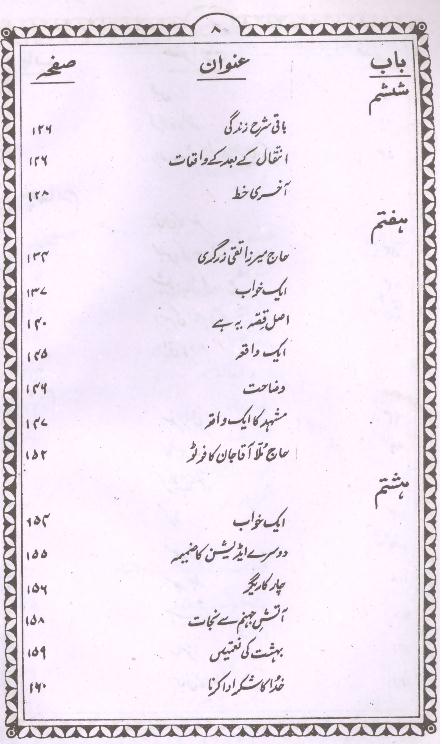 ۸
باب عنوان صفحہ
ششم
باقی شرح زندگی ۱۲۶
انتقال کے بعد کے واقعات ۱۲۶
آخری خط ۱۲۸
ہفتم
حاج میرزا تقی زرگری ۱۳۴
ایک خواب ۱۳۷
اصل قصّہ یہ ہے ۱۴۰
ایک واقعہ ۱۴۵
وضاحت ۱۴۶
مشہد کا ایک واقعہ ۱۴۷
حاج مُلّا آقا جان کا فوٹو ۱۵۲
ہشتم
ایک خواب ۱۵۴
دوسرے ایڈیشن کا ضمیمہ ۱۵۵
چار کاریگر ۱۵۶
آتشِ جہنم سے نجات ۱۵۸
بہشت کی نعمتیں ۱۵۹
خُدا کا شکر ادا کرنا ۱۶۰